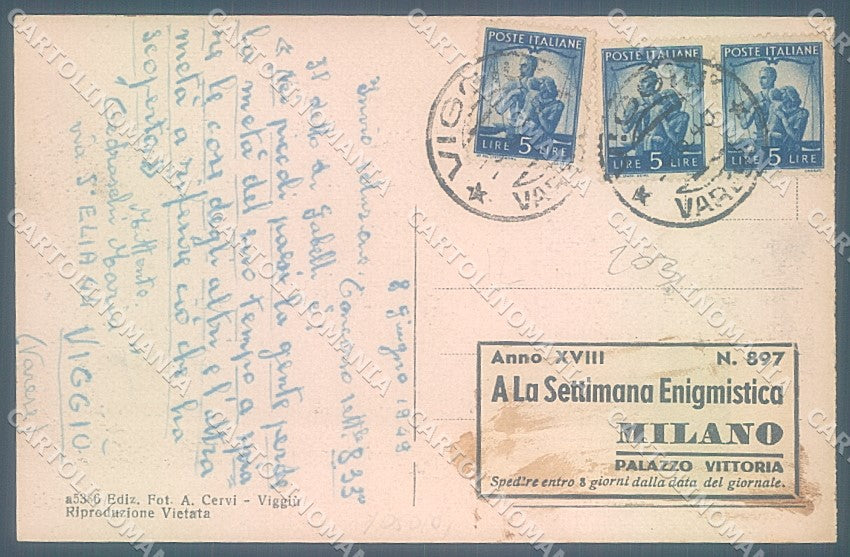 POSTE ITALIANE
LIRE 5 LIRE
POSTE ITALIANE
LIRE 5 LIRE
POSTE ITALIANE
LIRE 5 LIRE
VARESE
8 Giugno 1949
Il detto di Gabelli è:
Nei piccoli paesi la gente perde
la metà del suo tempo a spia
re le cose degli altri e l'altra
metà a riferire ciò che ha
scoperto
Mittente
Via S. ELIA
VIGGIÙ
(Varese)
Anno XVIII N. 897
A La Settimana Enigmistica
MILANO
PALAZZO VITTORIA
Sped're entro 8 giorni dalla data del giornale.
a5386 Ediz. Fot. A. Cervi - Viggiù
Riproduzione Vietata
CARTOLINOMANIA